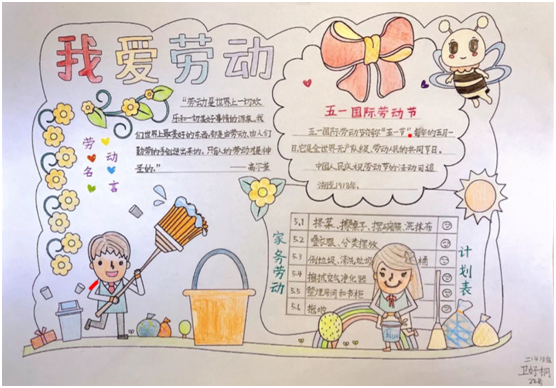 我爱劳动
"劳动是世界上一切欢
乐和一切美好事情的源泉,我
们世界上最美好的东西,都是由劳动,由人们
勤劳的手创造出来的,只有人的劳动才是神
圣的。"——高尔基
劳动
名言
五一国际劳动节
五一国际劳动节简称"五一节",每年的五月一
日,它是全世界无产阶级、劳动人民的共同节日。
中国人民庆祝劳动节的活动可追
溯至1918年。
家务劳动
计划表
5.1 择菜、擦桌子、摆碗筷、洗抹布
5.2 叠衣服、分类摆放
5.3 倒垃圾、清洗垃圾桶
5.4 擦拭空气净化器
5.5 整理房间和书柜
5.6